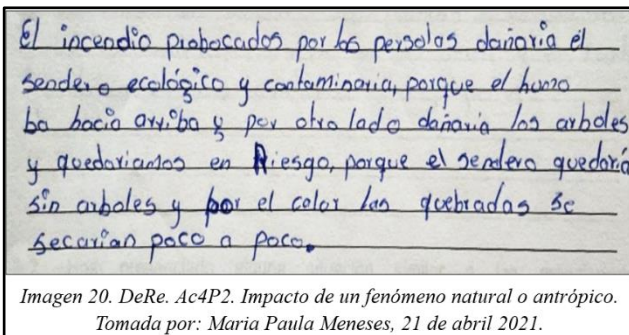 El incendio probocados por las persolas dañaria el
sendero ecológico y contaminaria, porque el humo
ba hacia arriba y por otro lado dañaria los arboles
y quedariamos en Riesgo, porque el sendero quedaría
sin arboles y por el calor las quebradas se
secarian poco a poco.
Imagen 20. DeRe. Ac4P2. Impacto de un fenómeno natural o antrópico.
Tomada por: Maria Paula Meneses, 21 de abril 2021.